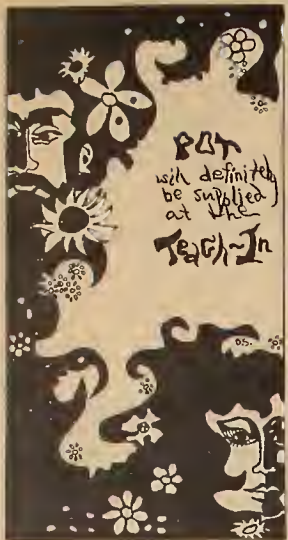 POT
will definitely
be supplied
at the
Teach-In
D.S.